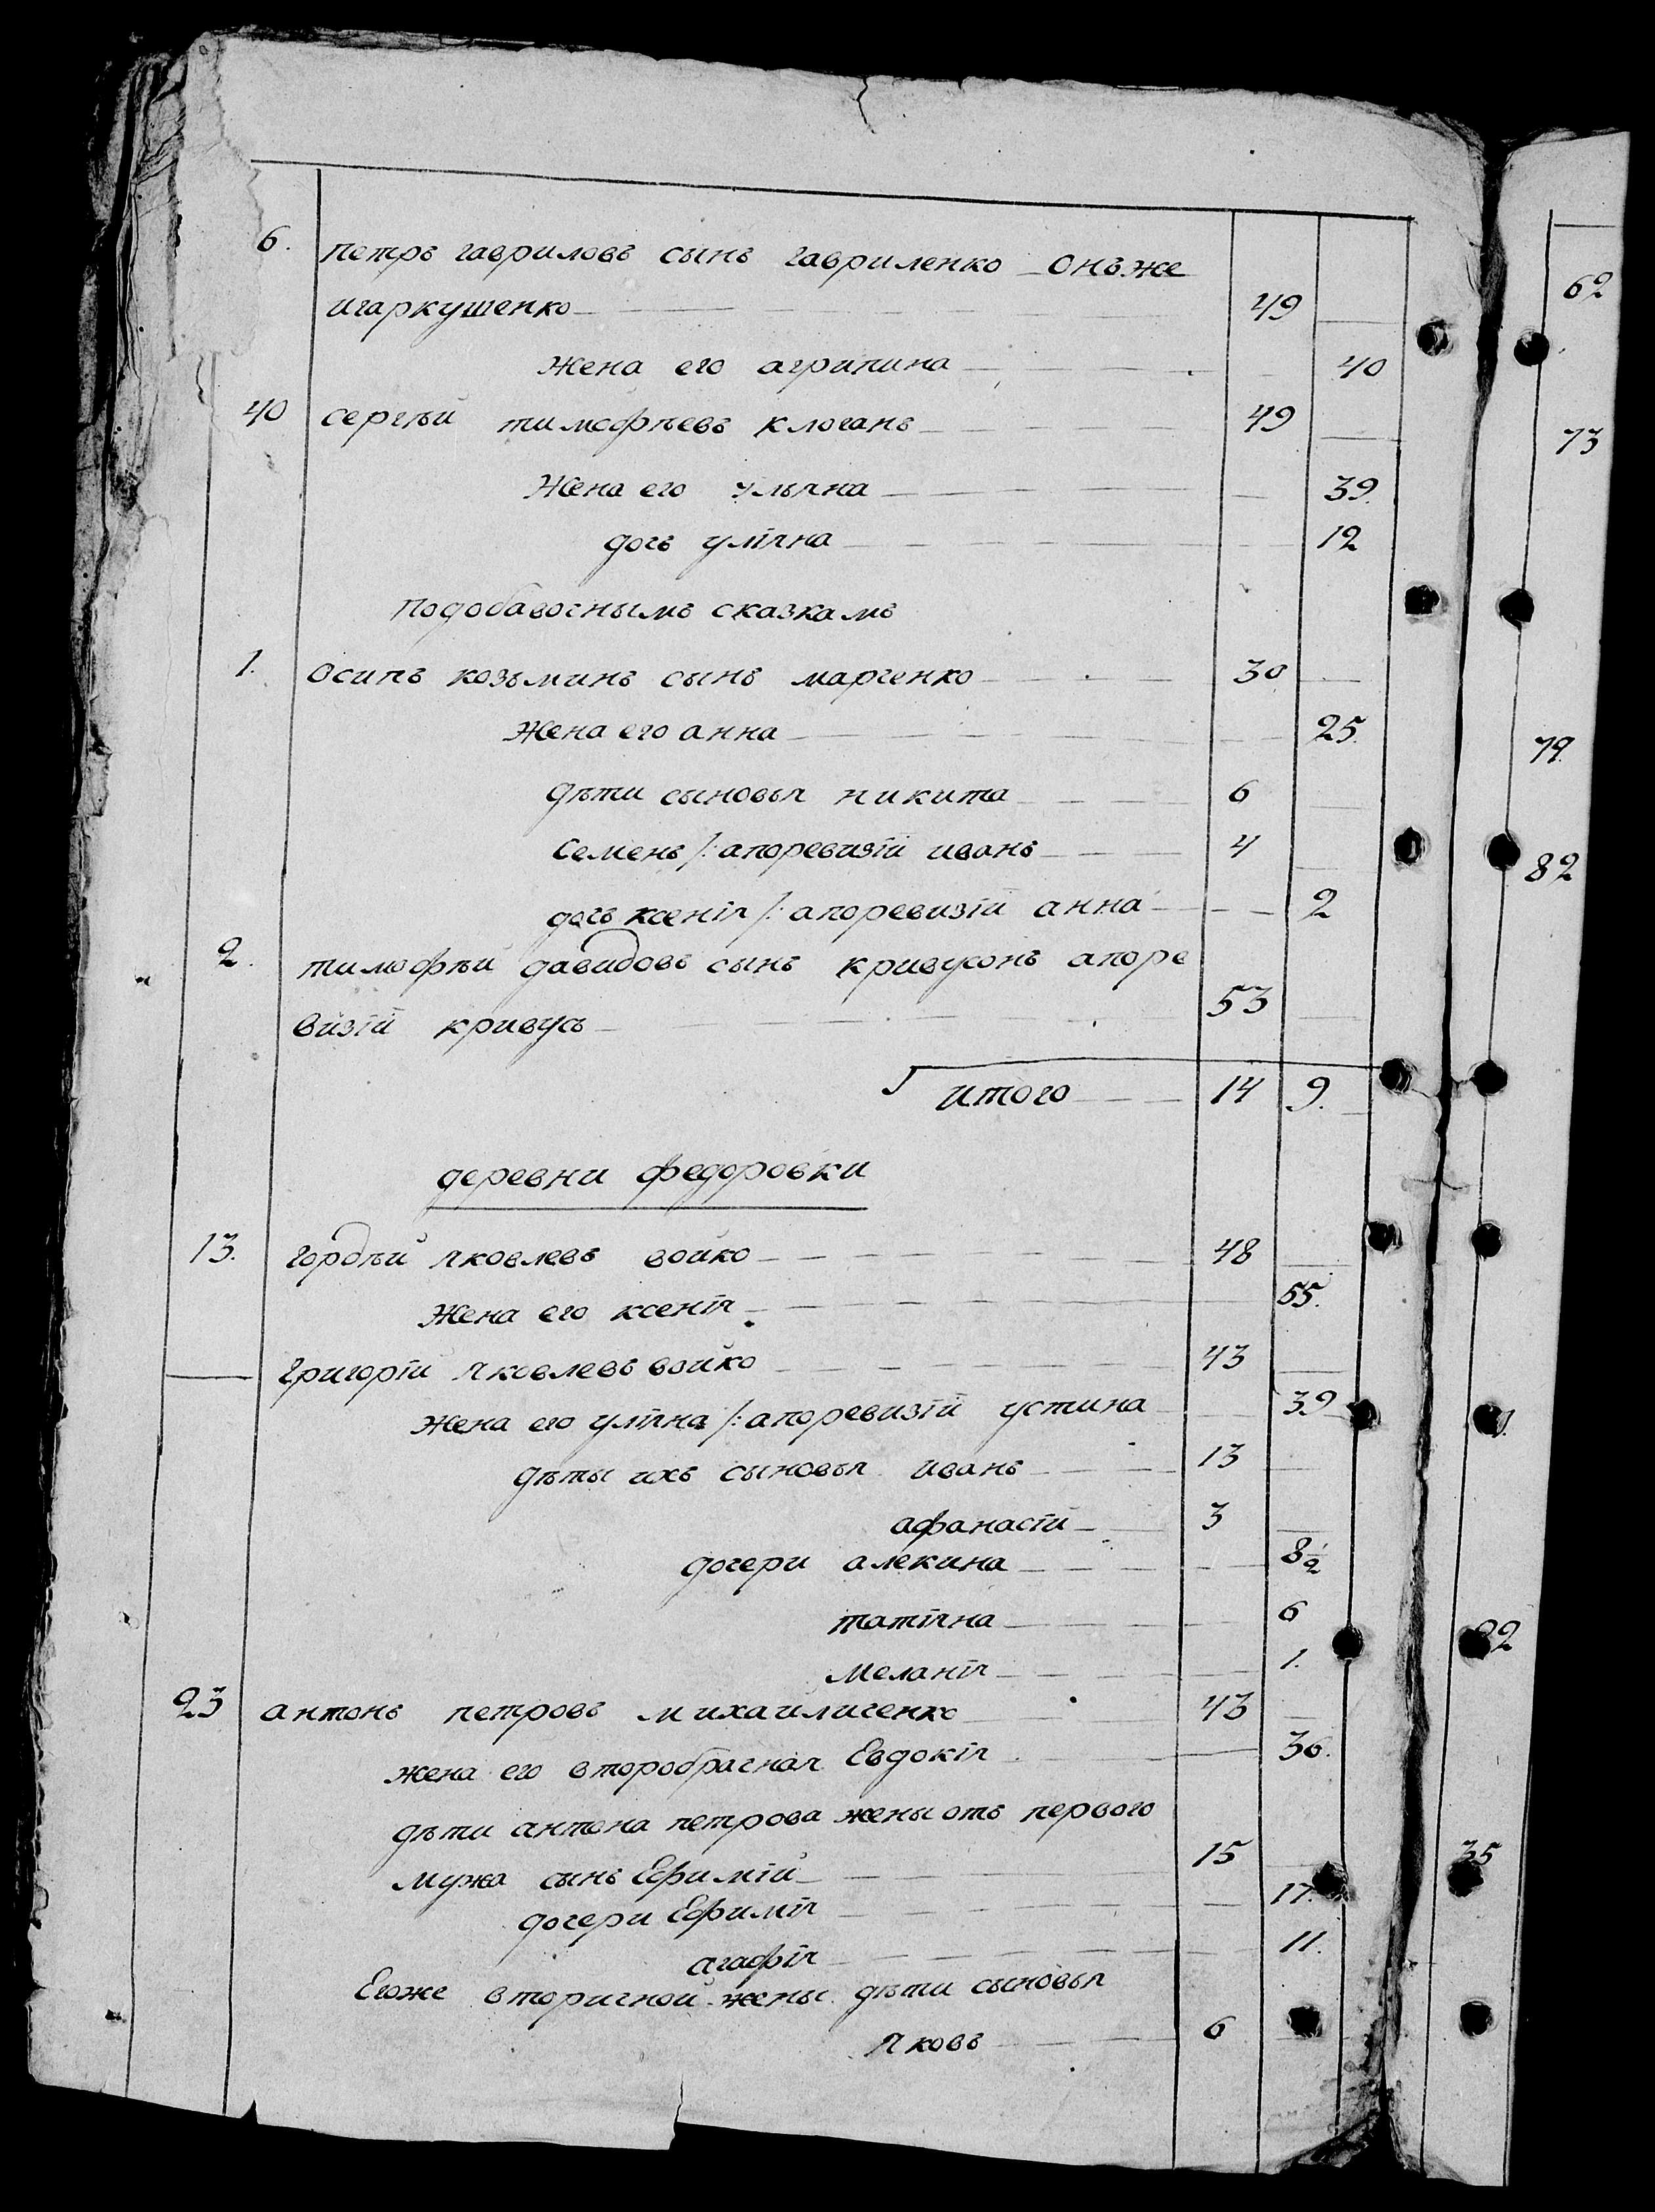 6. петръ гавриловъ сынъ гавриленко онъже
игаркушенко 49
жена его агрипина 40
40 сергѣй тимофѣевъ клочанъ 49
жена его ульяна 39.
дочь улiяна 12
подобавочнымъ сказкамъ
1. осипъ козьминъ сынъ марченко 30
жена его анна 25.
дѣти сыновья никита 6
семенъ /: апоревизiи иванъ 4
дочь ксенiя /: апоревизiи анна 2
2. тимофѣй давидовъ сынъ кривусонъ апоре
визiи кривусъ 53
итого 14 9.
деревни федоровки
13. гордѣй яковлевъ воико 48
жена его ксенiя 55.
григорiй яковлевъ воико 43
жена его улiяна /: апоревизiи устина 39
дѣты ихъ сыновья иванъ 13
афанасiй 3
дочери алекина 8½
татiяна 6
меланiя 1.
23 антонъ петровъ михаиличенко 43
жена его второбрачная Евдокiя 36.
дѣти антона петрова жены отъ первого
мужа сынъ Ефимiй 15
дочери Ефимiя 17.
агафiя 11.
Егоже вторичной жены дѣти сыновья
яковъ 6
62
73
79.
82
35